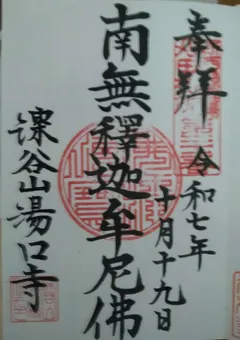 奉拝
令和七年
十月十九日
南無釋迦牟尼佛
谷山湯口寺